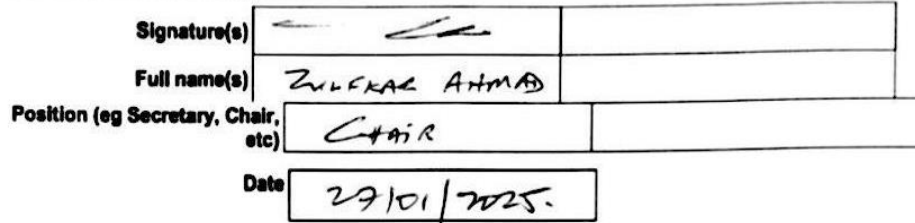 Signature(s)
Full name(s) ZULFKAR AHMAD
Position (eg Secretary, Chair,
etc) CHAIR
Date 27/01/2025.